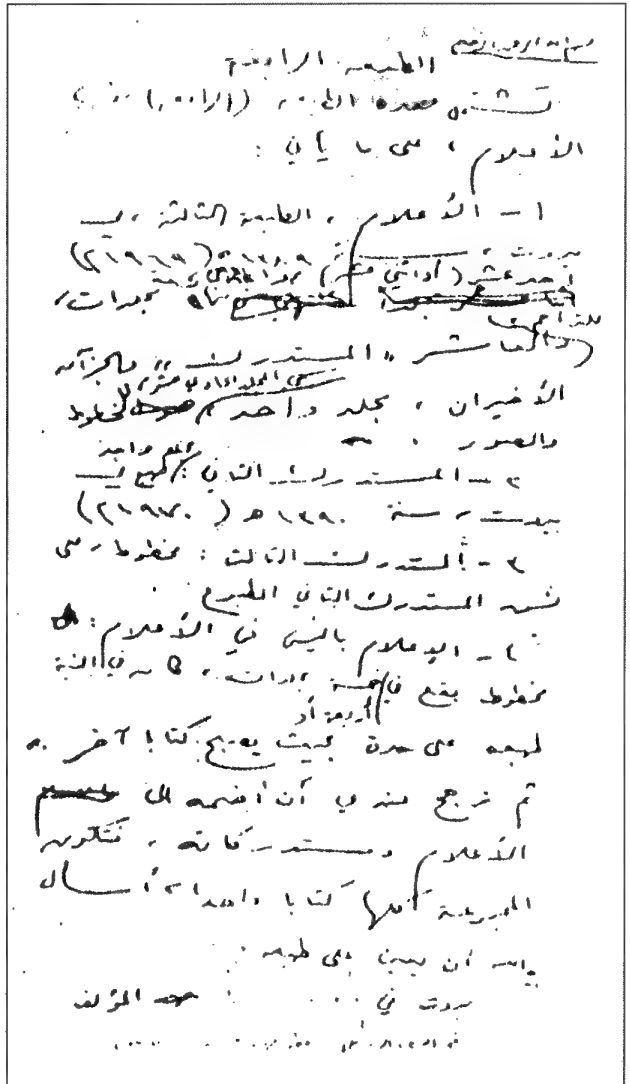 بسم الله الرحمن الرحيم
الطبعة الرابعة
تشتمل هذه الطبعة (الرابعة) من
الأعلام، على ما يأتي:
١ - الأعلام، الطبعة الثالثة، في
بيروت، سنة ١٣٨٩ هـ (١٩٦٩ م)
أحد عشر (أو اثني عشر)
مجلدات،
للتراجم
والعاشر «المستدرك» والجزآن
الأخيران، مجلد واحد، للخطوط
والصور.
٢ - المستدرك الثاني: مجلد واحد طبع في
بيروت، سنة ١٣٩٠ هـ (١٩٧٠ م)
٣ - المستدرك الثالث: مخطوط، على
نسق المستدرك الثاني المطبوع.
٤ - الإعلام بما ليس في الأعلام:
مخطوط يقع في أربعة أو خمسة مجلدات، كان في النية
طبعه على حدة بحيث يصبح كتابا آخر.
ثم ترجح عندي أن أضمه إلى
الأعلام ومستدركاته، فتكون
المجموعة كلها كتابا واحدا، أسأل
الله أن يعين على طبعه.
بيروت في ... المؤلف